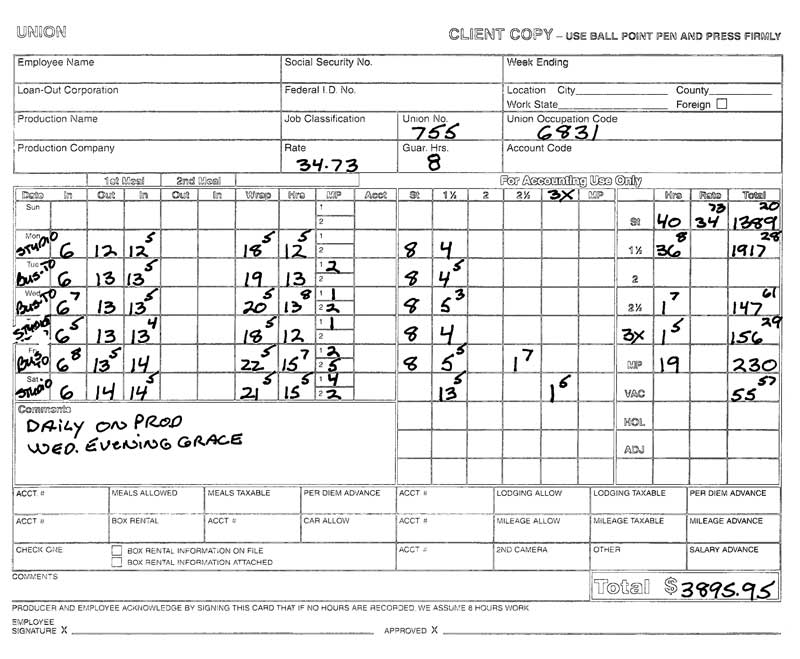 UNION
CLIENT COPY – USE BALL POINT PEN AND PRESS FIRMLY
Employee Name Social Security No. Week Ending
Loan-Out Corporation Federal I.D. No. Location City County
Work State Foreign
Production Name Job Classification Union No. 755 Union Occupation Code 6831
Production Company Rate 34.73 Guar. Hrs. 8 Account Code
1st Meal 2nd Meal For Accounting Use Only
Date In Out In Out In Wrap Hrs MP Acct St 1½ 2 2½ 3X MP Hrs Rate Total
Sun 1 2 St 40 34 73 1389 20
Mon STUDIO 6 12 12 5 18 5 12 5 1 2 8 4 1½ 36 8 1917 28
Tue BUS-TO 6 13 13 5 19 13 1 2 2 8 4 5 2
Wed BUS-TO 6 7 13 13 5 20 5 13 8 1 1 2 2 8 5 3 2½ 1 7 147 61
STUDIO 6 5 13 13 4 18 5 12 1 1 2 8 4 3X 1 5 156 29
Fri BUS-TO 6 8 13 5 14 22 5 15 7 1 2 2 5 8 5 5 1 7 MP 19 230
Sat STUDIO 6 14 14 5 21 5 15 5 1 4 2 2 13 5 1 5 VAC 55 57
Comments
DAILY ON PROD
WED. EVENING GRACE
HOL
ADJ
ACCT # MEALS ALLOWED MEALS TAXABLE PER DIEM ADVANCE ACCT # LODGING ALLOW LODGING TAXABLE PER DIEM ADVANCE
ACCT # BOX RENTAL ACCT # CAR ALLOW ACCT # MILEAGE ALLOW MILEAGE TAXABLE MILEAGE ADVANCE
CHECK ONE BOX RENTAL INFORMATION ON FILE ACCT # 2ND CAMERA OTHER SALARY ADVANCE
BOX RENTAL INFORMATION ATTACHED
COMMENTS
Total $3895.95
PRODUCER AND EMPLOYEE ACKNOWLEDGE BY SIGNING THIS CARD THAT IF NO HOURS ARE RECORDED, WE ASSUME 8 HOURS WORK
EMPLOYEE
SIGNATURE X APPROVED X